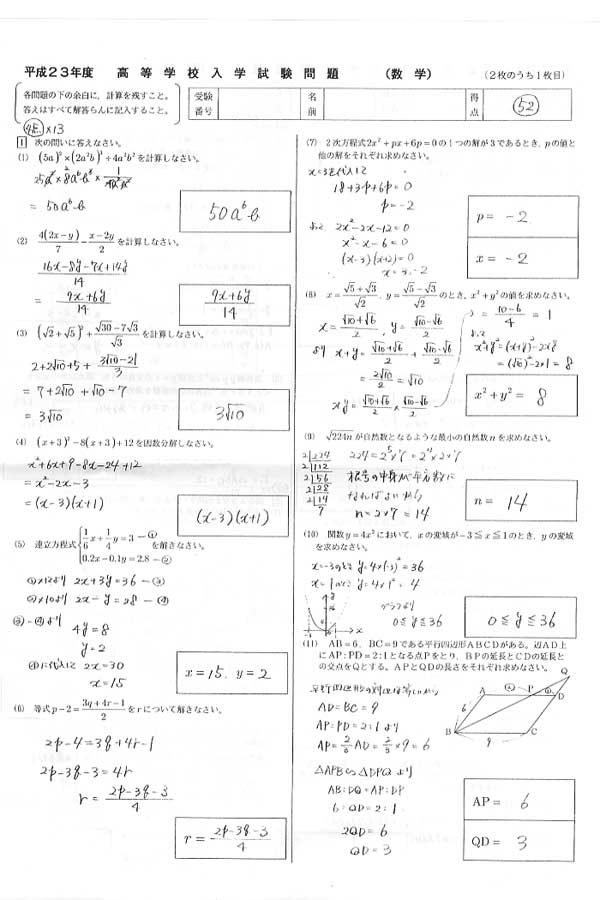 平成23年度 高等学校入学試験問題 (数学) (2枚のうち1枚目)
各問題の下の余白に,計算を残すこと。
答えはすべて解答らんに記入すること。
受験番号 名前 得点 52
4点×13
1 次の問いに答えなさい。
(1) (5a)²×(2a²b)³÷4a²b²を計算しなさい。
= 50a⁶b
50a⁶b
(2) 4(2x-y)/7 - (x-2y)/2 を計算しなさい。
(16x-8y-7x+14y)/14
= (9x+6y)/14
(9x+6y)/14
(3) (√2+√5)²+(√30-7√3)/√3 を計算しなさい。
2+2√10+5+(3√10-21)/3
= 7+2√10+√10-7
= 3√10
3√10
(4) (x+3)²-8(x+3)+12を因数分解しなさい。
x²+6x+9-8x-24+12
= x²-2x-3
= (x-3)(x+1)
(x-3)(x+1)
(5) 連立方程式 { 1/6 x+1/4 y=3 -① 0.2x-0.1y=2.8 -② を解きなさい。
①×12より 2x+3y=36 -③
②×10より 2x-y=28 -④
③-④より
4y=8
y=2
④に代入して 2x=30
x=15
x=15, y=2
(6) 等式p-2=(3q+4r-1)/2 をrについて解きなさい。
2p-4=3q+4r-1
2p-3q-3=4r
r=(2p-3q-3)/4
r=(2p-3q-3)/4
(7) 2次方程式2x²+px+6p=0の1つの解が3であるとき,pの値と
他の解をそれぞれ求めなさい。
x=3を代入して
18+3p+6p=0
p=-2
よって 2x²-2x-12=0
x²-x-6=0
(x-3)(x+2)=0
x=3,-2
p= -2
x= -2
(8) x=(√5+√3)/√2, y=(√5-√3)/√2 のとき,x²+y²の値を求めなさい。
x=(√10+√6)/2, y=(√10-√6)/2
より x+y=(√10+√6)/2+(√10-√6)/2
=2√10/2=√10
xy=(√10+√6)/2×(√10-√6)/2
=(10-6)/4=1
よって
x²+y²=(x+y)²-2xy
=(√10)²-2×1=8
x²+y²= 8
(9) √224n が自然数となるような最小の自然数nを求めなさい。
2)224
2)112
2)56
2)28
2)14
7
224=2⁵×7=2⁴×2×7
根号の中身が平方数に
なればよいから
n=2×7=14
n= 14
(10) 関数y=4x²において,xの変域が-3≦x≦1のとき,yの変域
を求めなさい。
x=-3のとき y=4×(-3)²=36
x=1のとき y=4×1²=4
グラフより
0≦y≦36
0≦y≦36
(11) AB=6, BC=9である平行四辺形ABCDがある。辺AD上
にAP:PD=2:1となる点Pをとり,BPの延長とCDの延長と
の交点をQとする。APとQDの長さをそれぞれ求めなさい。
平行四辺形の対辺は等しいから
AD=BC=9
AP:PD=2:1より
AP=2/3 AD=2/3×9=6
△APB∽△DPQより
AB:DQ=AP:DP
6:QD=2:1
2QD=6
QD=3
Q
A ② P ① D
6
B 9 C
AP= 6
QD= 3